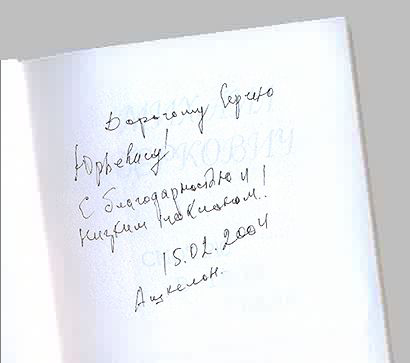 Дорогому Сергею
Юрьевичу!
С благодарностью и
низким поклоном!
15.02.2004
Ашкелон.